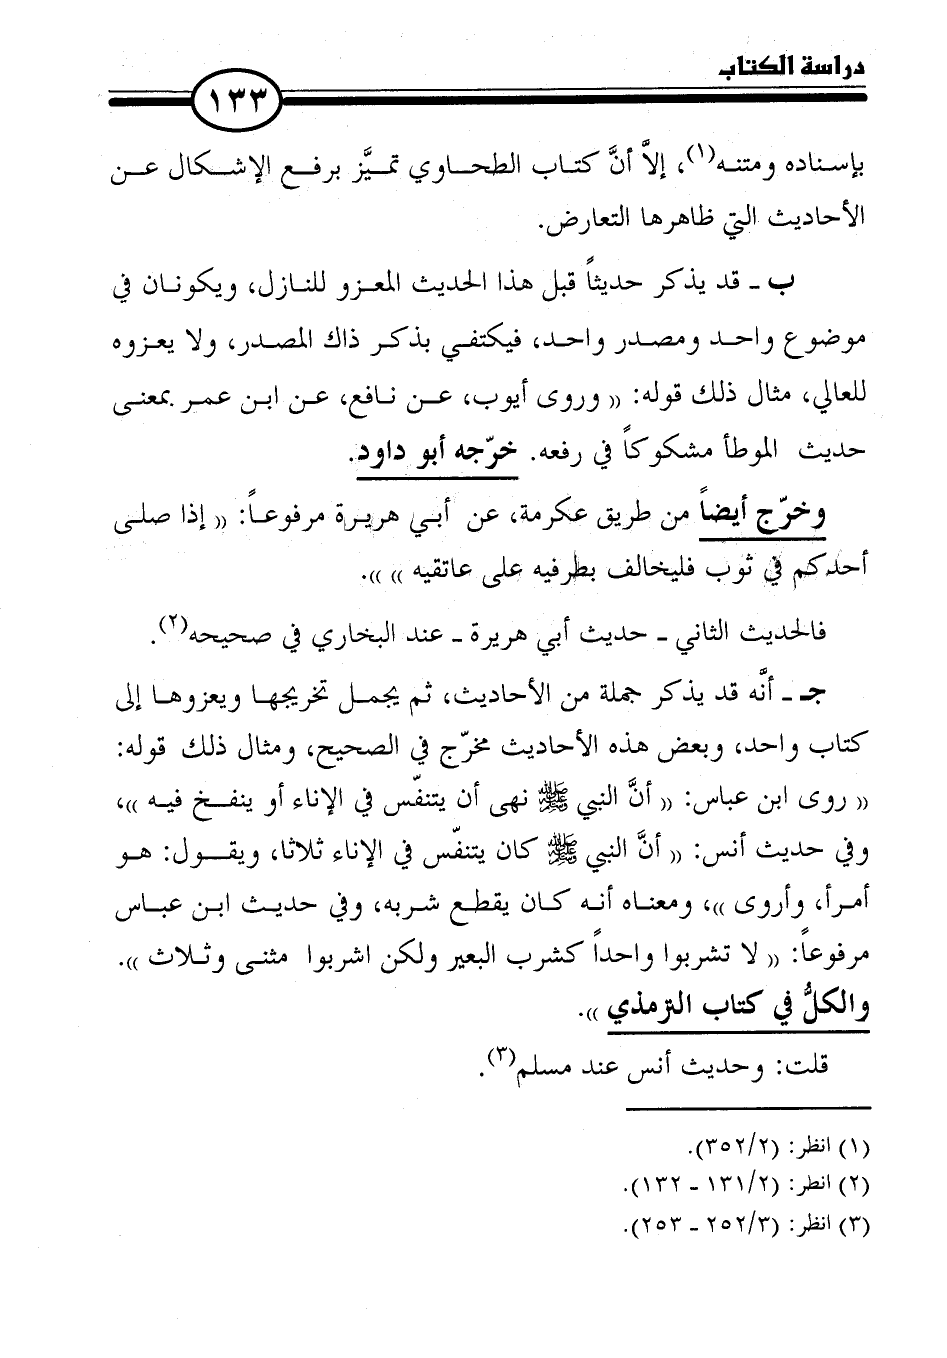 دراسة الكتاب
١٣٣
بإسناده ومتنه(١)، إلاَّ أنَّ كتاب الطحاوي تميَّز برفع الإشكال عن
الأحاديث التي ظاهرها التعارض.
ب ـ قد يذكر حديثاً قبل هذا الحديث المعزو للنازل، ويكونان في
موضوع واحد ومصدر واحد، فيكتفي بذكر ذاك المصدر، ولا يعزوه
للعالي، مثال ذلك قوله: (( وروى أيوب، عن نافع، عن ابن عمر بمعنى
حديث الموطأ مشكوكاً في رفعه. خرّجه أبو داود.
وخرّج أيضاً من طريق عكرمة، عن أبي هريرة مرفوعاً: (( إذا صلى
أحدكم في ثوب فليخالف بطرفيه على عاتقيه )) )).
فالحديث الثاني ـ حديث أبي هريرة ـ عند البخاري في صحيحه(٢).
جـ ـ أنَّه قد يذكر جملة من الأحاديث، ثم يجمل تخريجها ويعزوها إلى
كتاب واحد، وبعض هذه الأحاديث مخرّج في الصحيح، ومثال ذلك قوله:
(( روى ابن عباس: (( أنَّ النبي ﷺ نهى أن يتنفّس في الإناء أو ينفخ فيه ))،
وفي حديث أنس: (( أنَّ النبي ﷺ كان يتنفّس في الإناء ثلاثا، ويقول: هو
أمرأ، وأروى ))، ومعناه أنه كان يقطع شربه، وفي حديث ابن عباس
مرفوعاً: (( لا تشربوا واحداً كشرب البعير ولكن اشربوا مثنى وثلاث )).
والكلُّ في كتاب الترمذي )).
قلت: وحديث أنس عند مسلم(٣).
(١) انظر: (٣٥٢/٢).
(٢) انظر: (١٣١/٢ ـ ١٣٢).
(٣) انظر: (٢٥٢/٣ ـ ٢٥٣).